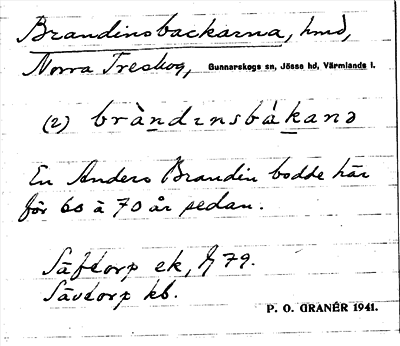 Brandinsbackarna, hmd,
Norra Treskog, Gunnarskogs sn, Jösse hd, Värmlands l.
(2) bràndɪnsbákanə
En Anders Brandin bodde här
för 60 à 70 år sedan.
Säfdorp ek, 79.
Sävtorp kb.
P. O. GRANÉR 1941.